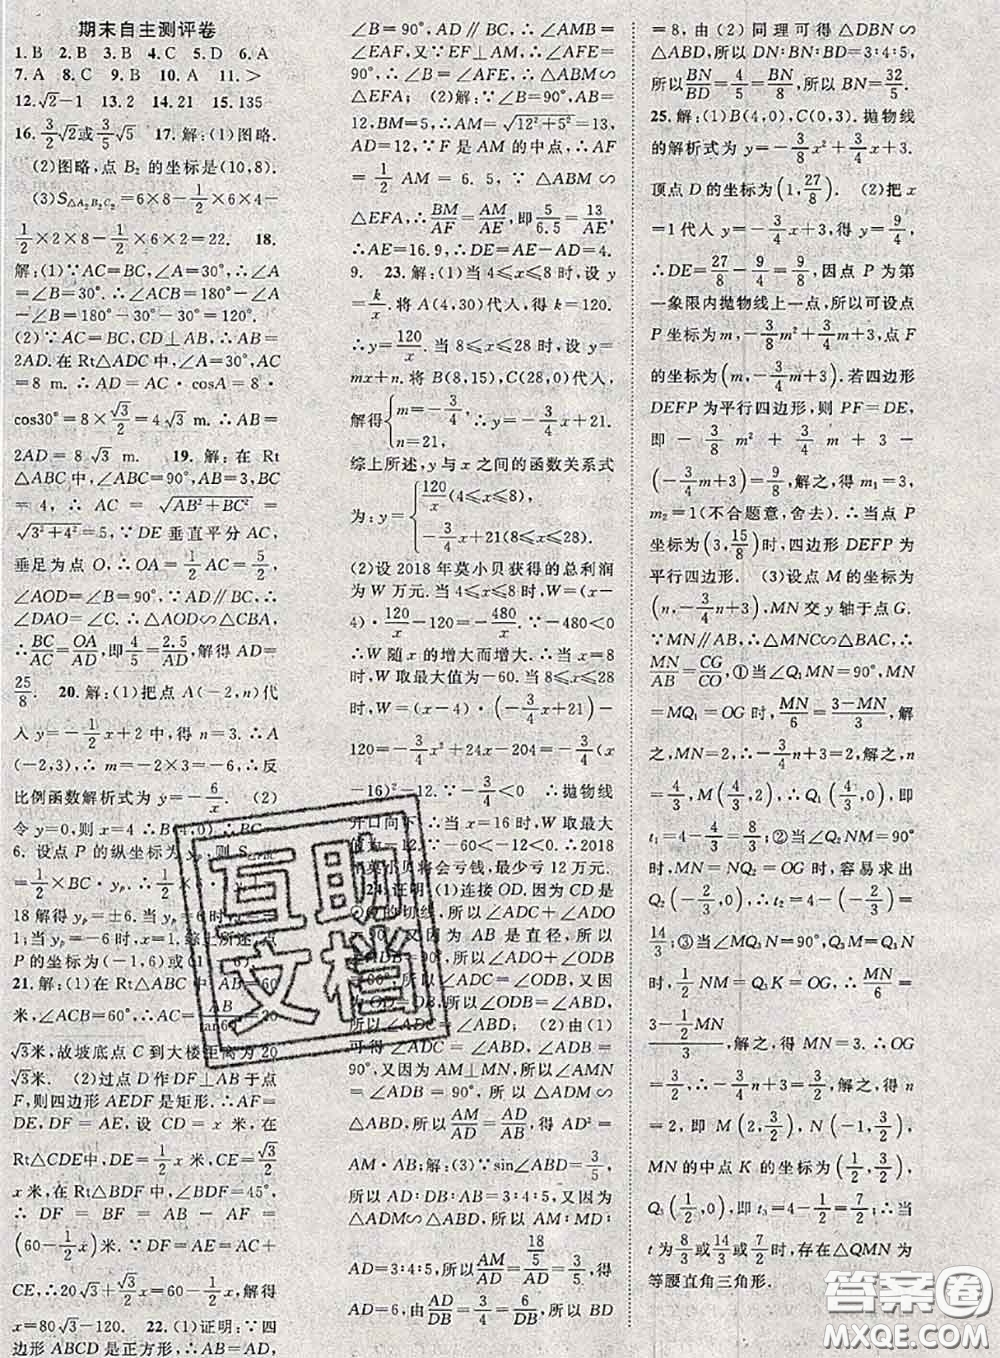 期末自主测评卷
1. B  2. B  3. B  4. C  5. D  6. A
7. A  8. C  9. B  10. A  11. >
12. √2-1  13. 2  14. 21  15. 135
16. 3/2√2或3/5√5  17. 解:(1)图略.
(2)图略,点 B₂ 的坐标是(10,8).
(3)S△A₂B₂C₂=6×8-1/2×6×4-
1/2×2×8-1/2×6×2=22.  18.
解:(1)∵AC=BC,∠A=30°,∴∠A
=∠B=30°.∴∠ACB=180°-∠A
-∠B=180°-30°-30°=120°.
(2)∵AC=BC,CD⊥AB,∴AB=
2AD.在Rt△ADC中,∠A=30°,AC
=8 m.∴AD=AC·cosA=8·
cos30°=8×√3/2=4√3.∴AB=
2AD=8√3 m.  19. 解:在 Rt
△ABC中,∠ABC=90°,AB=3,BC
=4,∴AC=√(AB²+BC²)=
√(3²+4²)=5,∵DE垂直平分 AC,
垂足为点 O,∴OA=1/2AC=5/2,
∠AOD=∠B=90°,∵AD∥BC,∴
∠DAO=∠C.∴△AOD∽△CBA,
∴BC/AC=OA/AD,即4/5=2.5/AD,解得 AD=
25/8.  20. 解:(1)把点 A(-2,n)代
入 y=-1/2x+2中,得 n=3.∴A
(-2,3),∴m=-2×3=-6,∴反
比例函数解析式为 y=-6/x.  (2)
令 y=0,则 x=4
6. 设点 P 的纵坐标为
=1/2×BC·yₚ,
18解得 yₚ=±6.当 yₚ=6时,x=-
1;当 yₚ=-6时,x=1,综上所述,点
P的坐标为(-1,6)或(1,-6).
21. 解:(1)在 Rt△ABC 中,AB=60
米,∠ACB=60°,∴AC=AB/tan60°=20
√3米,故坡底点 C 到大楼距离为 20
√3米.  (2)过点 D作DF⊥AB于点
F,则四边形 AEDF 是矩形.∴AF=
DE,DF=AE,设 CD=x 米,在
Rt△CDE中,DE=1/2x米,CE=√3/2
x米,在 Rt△BDF 中,∠BDF=45°,
∴DF=BF=AB-AF=
(60-1/2x)米.∵DF=AE=AC+
CE,∴20√3+√3/2x=60-1/2x,解得
x=80√3-120.  22. (1)证明:∵四
边形 ABCD 是正方形,∴AB=AD,
∠B=90°,AD∥BC,∴∠AMB=
∠EAF,又∵EF⊥AM,∴∠AFE=
90°,∴∠B=∠AFE,∴△ABM∽
△EFA; (2)解:∵∠B=90°,AB=
12,BM=5,∴AM=√(12²+5²)=13,
AD=12,∵F是 AM 的中点,∴AF=
1/2 AM=6.5,∵△ABM∽
△EFA,∴BM/AF=AM/AE,即5/6.5=13/AE,
∴AE=16.9,∴DE=AE-AD=4.
9.  23. 解:(1)当 4≤x≤8时,设 y=
k/x.将 A(4,30)代入,得 k=120.
∴y=120/x.当 8≤x≤28 时,设 y=
mx+n.将 B(8,15),C(28,0)代入,
解得{m=-3/4, n=21, ∴y=-3/4x+21.
综上所述,y与 x之间的函数关系式
为:y={120/x(4≤x≤8), -3/4x+21(8≤x≤28).
(2)设 2018 年莫小贝获得的总利润
为 W 万元.当 4≤x≤8时,W=(x-
4)·120/x-120=-480/x.∵-480<0
∴W 随 x 的增大而增大.∴当 x=8
时,W取最大值为-60.当 8≤x≤28
时,W=(x-4)·(-3/4x+21)-
120=-3/4x²+24x-204=-3/4(x
-16)²-12.∵-3/4<0,∴抛物线
开口向下.∴当 x=16时,W取最大
值为-12.∵-60<-12<0.∴2018
莫小贝将会亏钱,最少亏 12 万元.
24. 证明:(1)连接 OD.因为 CD 是
的切线,所以∠ADC+∠ADO
=90°.因为 AB 是直径,所以
∠ADO+
∠ADC=∠ODB=
∠ODB=∠ABD,
∠ADC=∠ABD;  (2)由(1)
可得∠ADC=∠ABD,所以∠AMN
=∠ADB=90°,所以
△ADM∽△ABD,所以AM/AD=AD/AB,即 AD²=
AM·AB;解:(3)∵sin∠ABD=3/5,
所以 AD:DB:AB=3:4:5,又因为
△ADM∽△ABD,所以 AM:DM:
AD=3:4:5,所以AM/AD=(18/5)/AD=3/5,得
AD=6,由AD/DB=6/DB=3/4,所以 BD
=8,由(2)同理可得△DBN∽
△ABD,所以 DN:BN:BD=3:4:5,
所以BN/BD=4/5=BN/8,所以 BN=32/5.
25. 解:(1)B(4,0),C(0,3).抛物线
的解析式为 y=-3/8x²+3/4x+3.
顶点 D 的坐标为(1,27/8).  (2)把 x
=1代入 y=-3/4x+3,得 y=9/4.
∴DE=27/8-9/4=9/8,因点 P 为第
一象限内抛物线上一点,所以可设点
P坐标为(m,-3/8m²+3/4m+3,点 F
的坐标为(m,-3/4m+3).若四边形
DEFP 为平行四边形,则 PF=DE,
即-3/8m²+3/4m+3-
(-3/4m+3)=9/8,解之,得 m₁=3,
m₂=1(不合题意,舍去).∴当点 P
坐标为(3,15/8)时,四边形 DEFP 为
平行四边形.  (3)设点 M 的坐标为
(n,-3/4n+3),MN 交 y 轴于点 G.
∵MN∥AB,∴△MNC∽△BAC,∴
MN/AB=CG/CO,①当∠Q₁MN=90°,MN
=MQ₁=OG时,MN/6=(3-MN)/3,解
之,MN=2,∴-3/4n+3=2,解之,n
=4/3,M(4/3,2),∴Q₁(4/3,0),即
t₁=4-4/3=8/3;②当∠Q₂NM=90°
时,MN=NQ₂=OG=2,容易求出
Q₂(-2/3,0),∴t₂=4-(-2/3)=
14/3;③当∠MQ₃N=90°,MQ₃=NQ₃
时,1/2MN=Q₃K=OG,∴MN/6=
(3-1/2MN)/3,解之,得 MN=3.∴OG
=3/2,即-3/4n+3=3/2,解之,得 n
=2,即 M(2,3/2),N(-1,3/2),
MN的中点 K 的坐标为(1/2,3/2),
Q₃(1/2,0),即 t₃=4-1/2=7/2.∴当
t为8/3或14/3或7/2时,存在△QMN为
等腰直角三角形.
互助
文档
答案圈
MXQE.COM